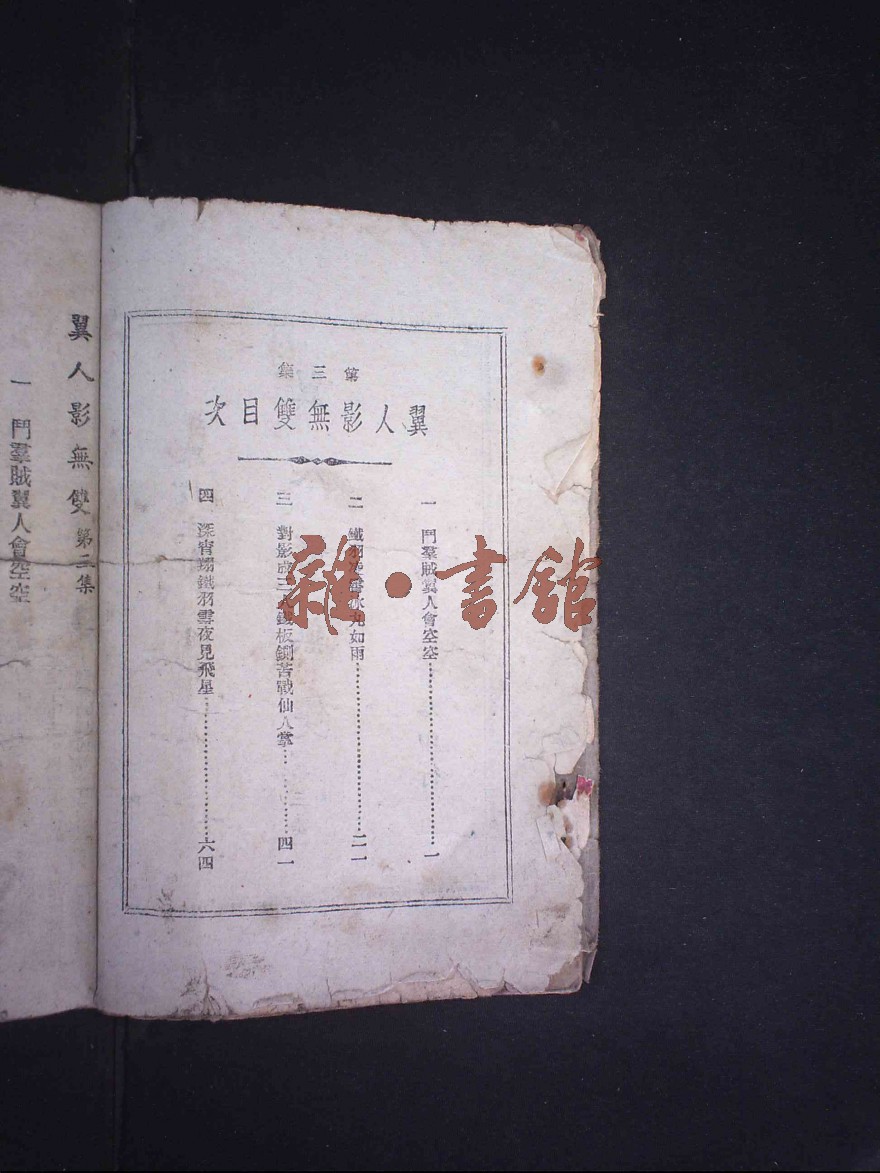 第三集
翼人影無雙目次
一 鬥羣賊翼人會空空……一
二 鐵羽凌雲冰丸如雨……二一
三 對影成三人鐵板鍘苦戰仙人掌……四一
四 深宵翔鐵羽雪夜見飛星……六四
翼人影無雙 第三集
一 鬥羣賊翼人會空空
雜·書館